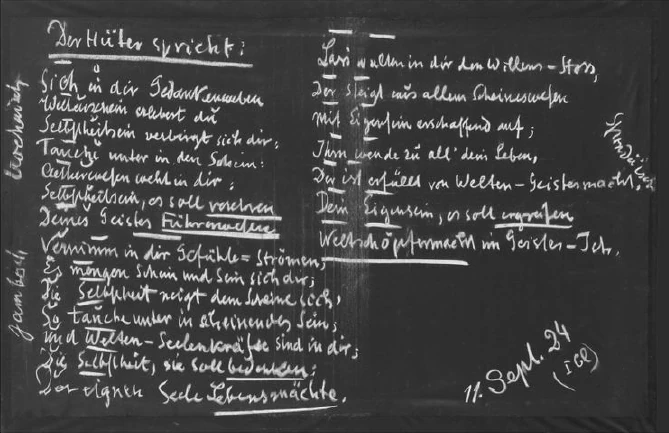 Der Hüter spricht:
Sieh in dir Gedankenweben
Weltenschein erlebest du
Selbstheitsein verbirgt sich dir;
Tauche unter in den Schein:
Aetherwesen weht in dir;
Selbstheitsein, es soll verehren
Deines Geistes Führerwesen
Vernimm in dir Gefühle-Strömen;
Es mengen Schein und Sein sich dir,
Die Selbstheit neigt dem Scheine sich;
So tauche unter in scheinendes Sein;
und Welten-Seelenkräfte sind in dir;
Die Selbstheit, sie soll bedenken;
Der eignen Seele Lebensmächte.
trochäisch
jambisch
Lass walten in dir den Willens-Stoss,
Der steigt aus allem Scheineswesen
Mit Eigensein erschaffend auf;
Ihm wende zu all' dein Leben,
Der ist erfüllt von Welten-Geistesmacht;
Dein Eigensein, es soll ergreifen
Weltschöpfermacht im Geistes-Ich.
11. Sept. 24